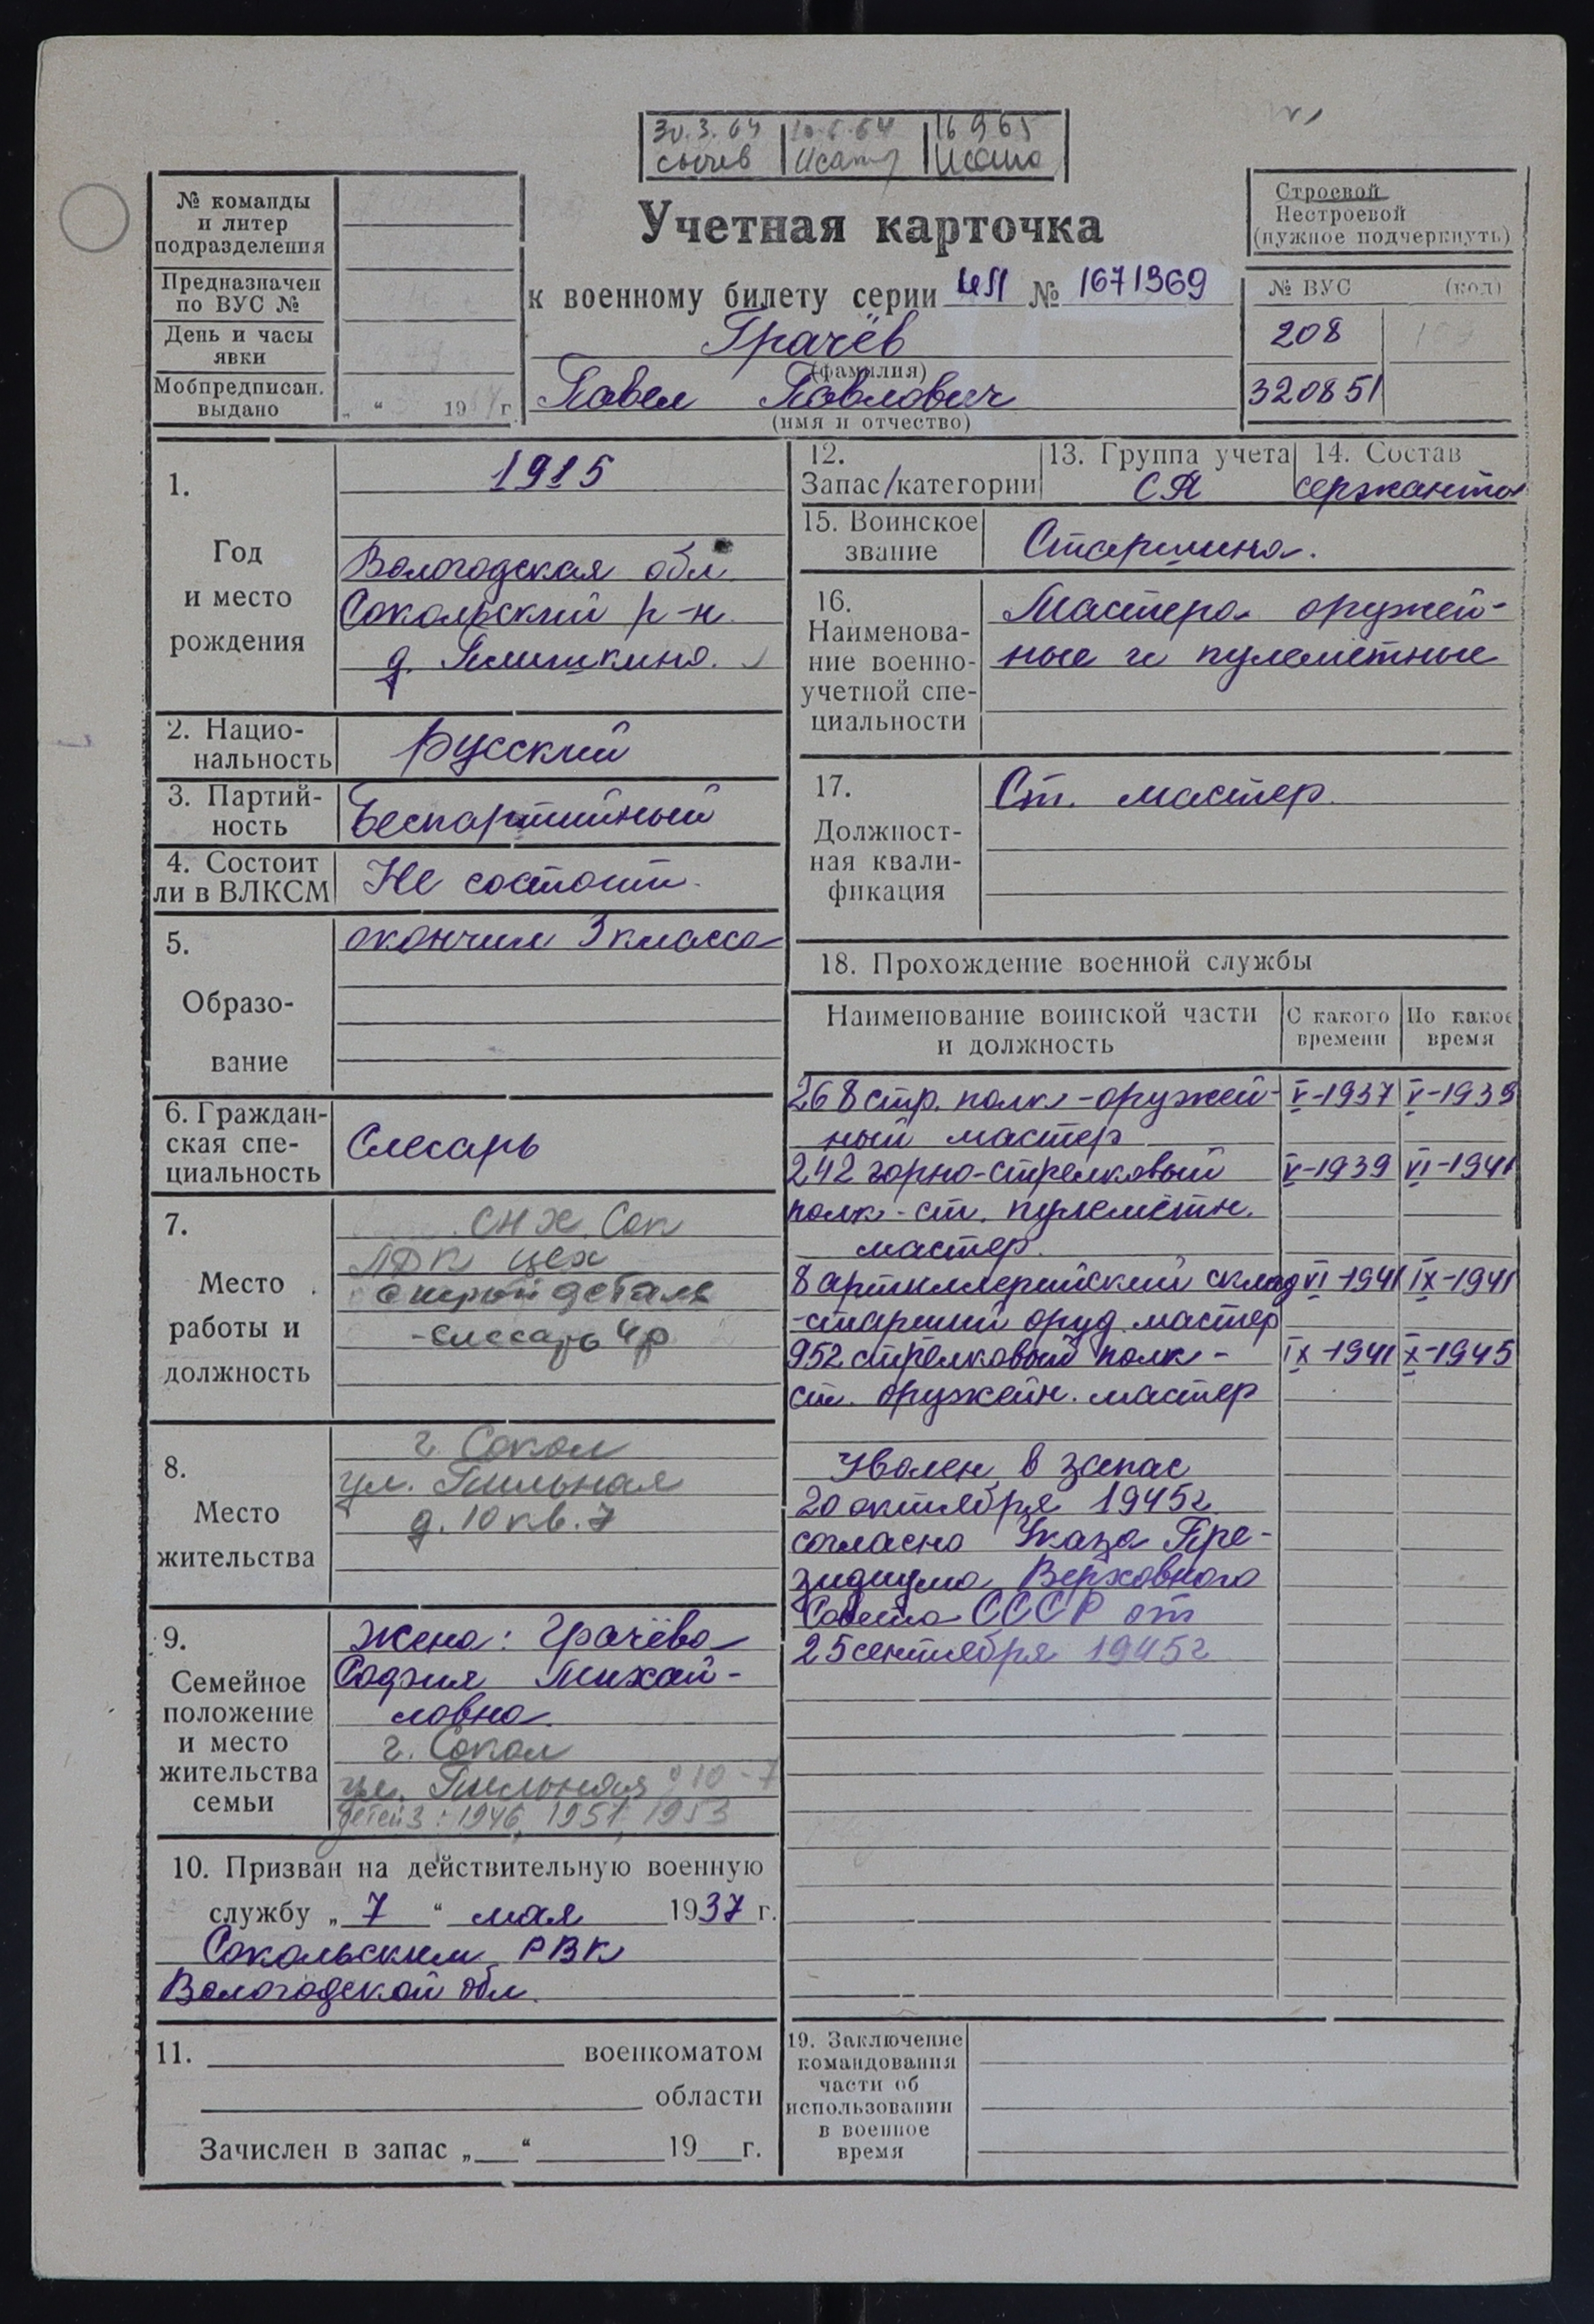 30.3.64 16 9 65
Сычев
№ команды и литер подразделения
Предназначен по ВУС №
День и часы явки
Мобпредписан. выдано „ “ 19 г
Учетная карточка
к военному билету серии № 1671369
Грачёв
(фамилия)
Павел Павлович
(имя и отчество)
Строевой
Нестроевой
(нужное подчеркнуть)
№ ВУС (код)
208
320851
1. Год и место рождения
1915
Вологодская обл.
Сокольский р-н.
д.
2. Национальность
русский
3. Партийность
Беспартийный
4. Состоит ли в ВЛКСМ
Не состоит.
5. Образование
окончил 3 класса
6. Гражданская специальность
Слесарь
7. Место работы и должность
СНХ. Сок
ЛДК цех
строй деталь
-слесарь 4р
8. Место жительства
г. Сокол
ул. Пильная
д. 10 кв. 7
9. Семейное положение и место жительства семьи
Жена: Грачёва
София Михай-
ловна.
г. Сокол
ул. Пильная 10-7
детей 3: 1946, 1951, 1953
10. Призван на действительную военную
службу „ 7 “ мая 1937 г.
Сокольским РВК
Вологодской обл.
11. военкоматом
области
Зачислен в запас „ “ 19 г.
12. Запас/категории
13. Группа учета
СА
14. Состав
сержанты
15. Воинское звание
Старшина.
16. Наименование военно-учетной специальности
Мастера оружей-
ные и пулемётные
17. Должностная квалификация
Ст. мастер.
18. Прохождение военной службы
Наименование воинской части и должность С какого времени По какое время
268 стр. полк - оружей- V-1937 V-1939
ный мастер
242 горно-стрелковый V-1939 VI-1941
полк - ст. пулемётн.
мастер.
8 артиллерийский склад VI-1941 IX-1941
-старший оруд. мастер
952 стрелковый полк - IX-1941 X-1945
ст. оружейн. мастер
Уволен в запас
20 октября 1945г
согласно Указа Пре-
зидиума Верховного
Совета СССР от
25 сентября 1945г
19. Заключение командования части об использовании в военное время